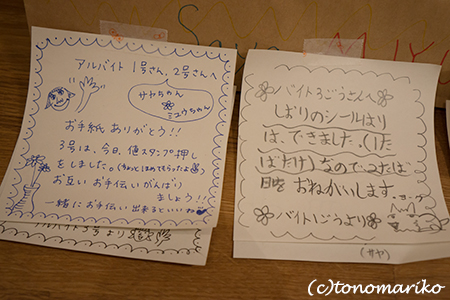 アルバイト 1号さん、2号さんへ
サヤちゃん
ミユウちゃん
お手紙 ありがとう!!
3号は、今日、値スタンプ押し
をしました。(ちょっとほめてもらったよ)
お互い お手伝いがんばり
ましょう!!
一緒にお手伝い出来るといいね
アルバイト3号より
バイト3ごうさんへ
しおりのシールはり
は、できました。(1た
ばだけ)なので、2たば
目を おねがいします。
バイト1ごうより
(サヤ)
(c)tonomariko